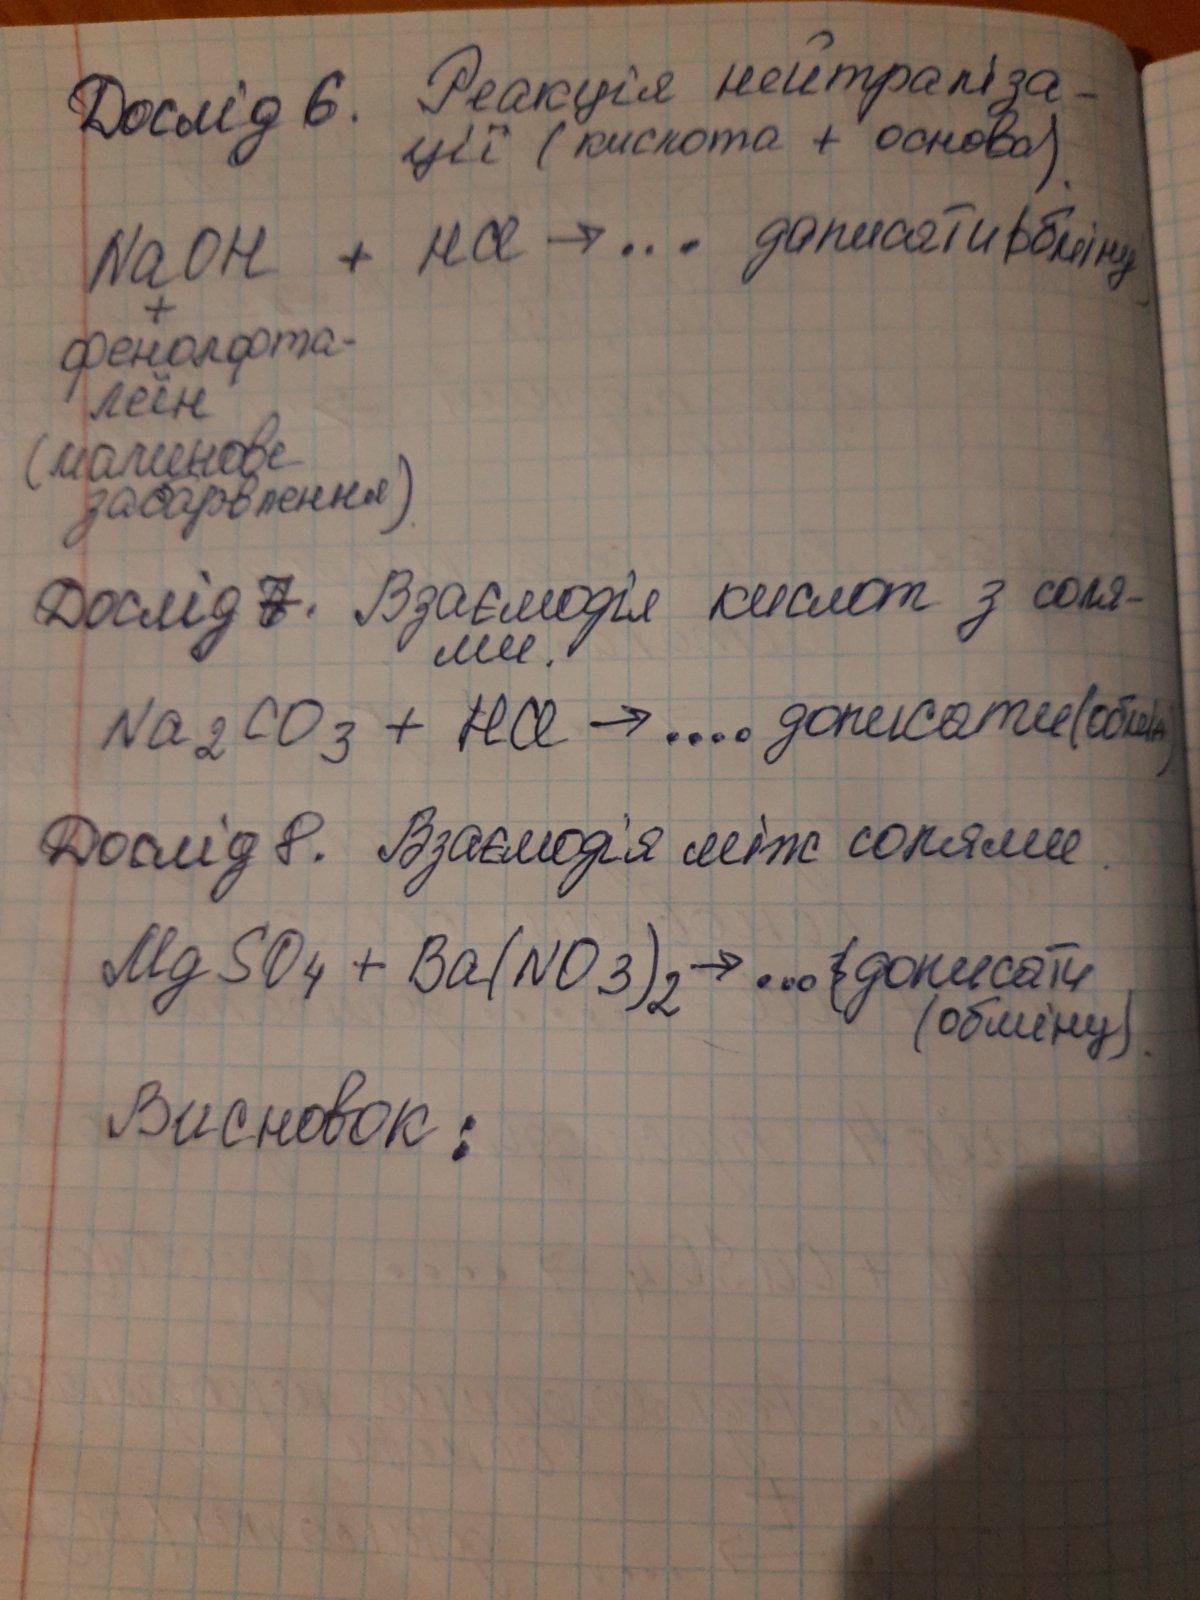 Дослід 6. Реакція нейтраліза-
ції (кислота + основа).
NaOH + HCl → ... дописати (обміну)
+
фенолфта-
леїн
(малинове
забарвлення).
Дослід 7. Взаємодія кислот з соля-
ми.
Na2CO3 + HCl → .... дописати (обмін)
Дослід 8. Взаємодія між солями.
MgSO4 + Ba(NO3)2 → ... дописати
(обміну).
Висновок: